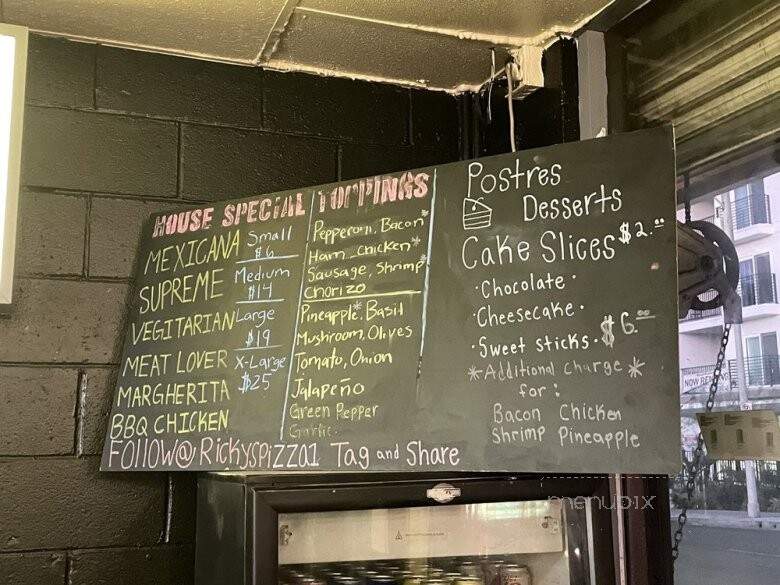 HOUSE SPECIAL TOPPINGS
MEXICANA
SUPREME
VEGITARIAN
MEAT LOVER
MARGHERITA
BBQ CHICKEN
Small
$6
Medium
$14
Large
$19
X-Large
$25
Pepperoni, Bacon*
Ham, Chicken*
Sausage, Shrimp*
Chorizo
Pineapple* Basil
Mushroom, Olives
Tomato, Onion
Jalapeño
Green Pepper
Garlic
Postres
Desserts
Cake Slices $2.00
·Chocolate·
·Cheesecake·
·Sweet sticks· $6.00
*Additional charge*
for:
Bacon Chicken
Shrimp Pineapple
Follow@Rickyspizza1 Tag and Share
menupix